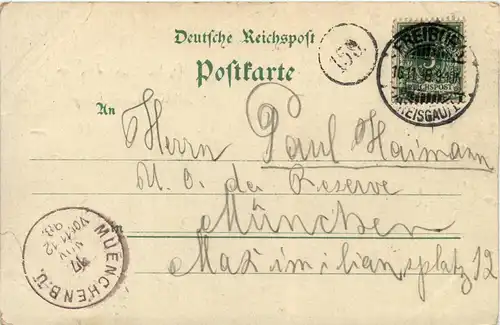 Deutsche Reichspost
Postkarte
An
Herrn Paul Haimann
U. O. der Reserve
München
Maximiliansplatz 12
FREIBURG
BREISGAU
REICHSPOST
5
158
MUENCHEN B.U.
17
NOV
VOR 11-12
98